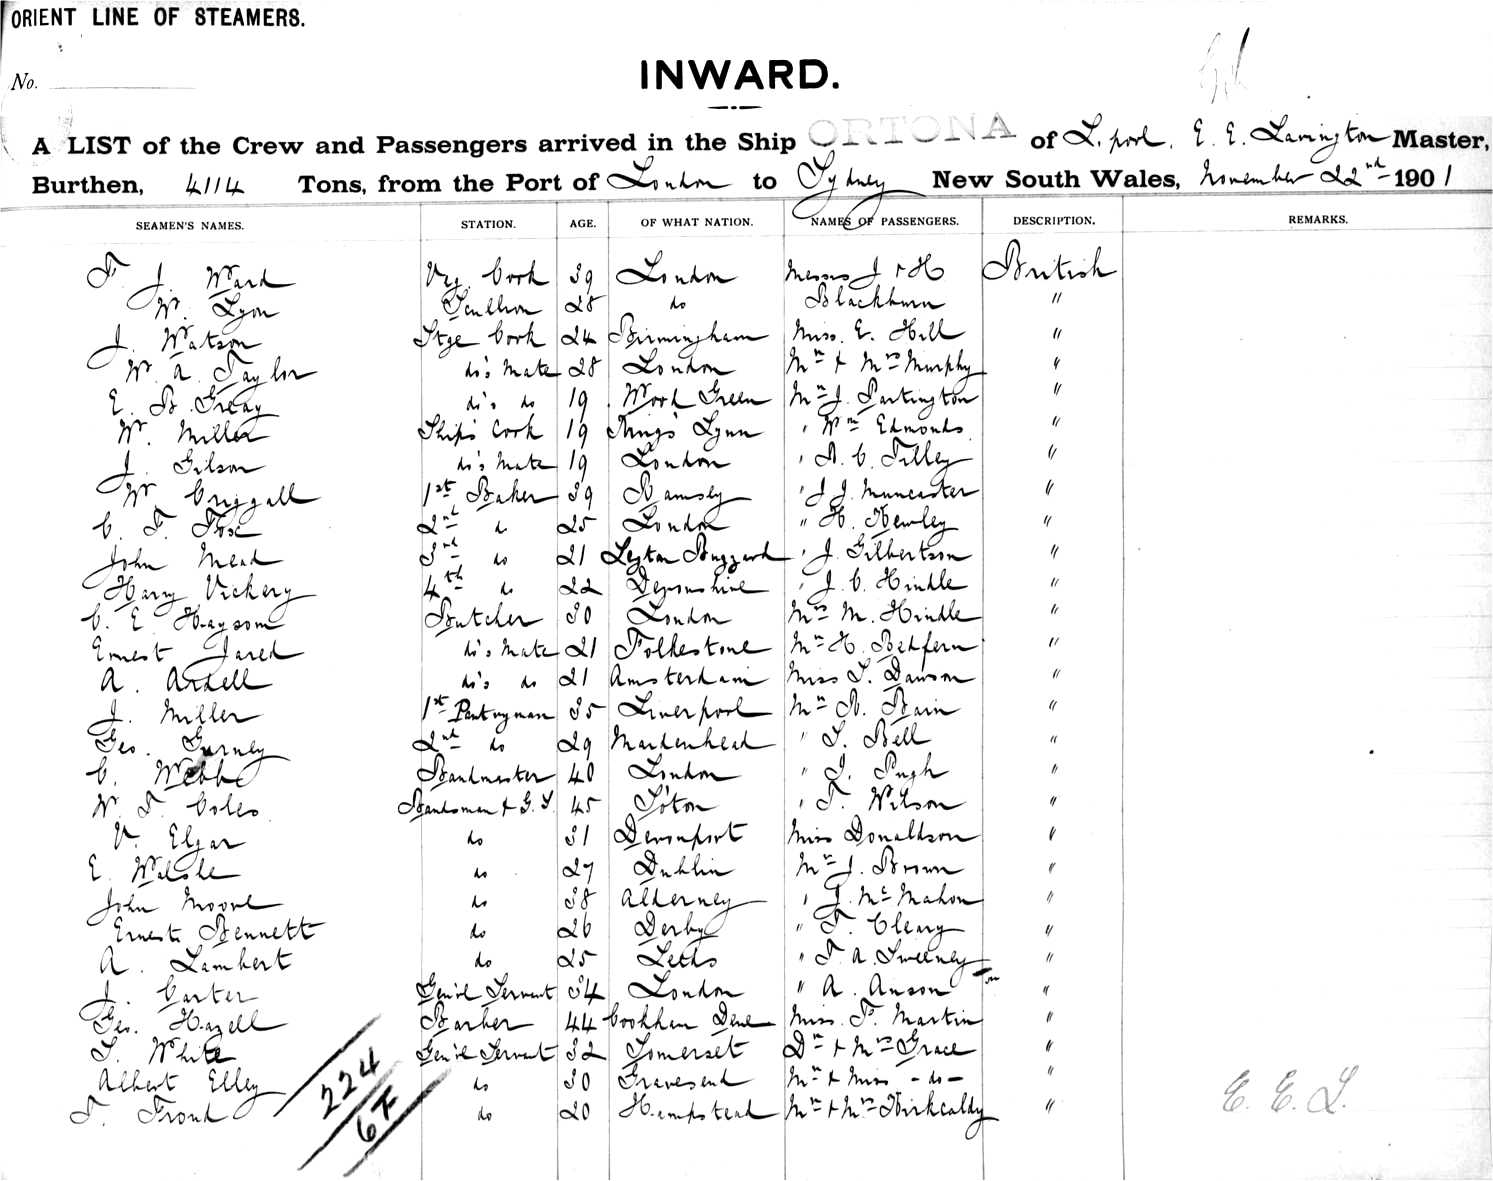 ORIENT LINE OF STEAMERS.
No.
INWARD.
A LIST of the Crew and Passengers arrived in the Ship ORTONA of L.pool. E. E. Lavington Master,
Burthen, 4114 Tons, from the Port of London to Sydney New South Wales, November 22nd 1901
SEAMEN'S NAMES. STATION. AGE. OF WHAT NATION. NAMES OF PASSENGERS. DESCRIPTION. REMARKS.
F. J. Ward Veg. Cook 39 London Messrs J & H British
W. Lyon Scullion 28 do Blackburn "
J. Watson Stge Cook 24 Birmingham Miss. E. Hill "
W. A. Taylor do's Mate 28 London Mr & Mrs Murphy "
E. B. Greay do's do 19 Wood Green Mr J. Partington "
W. Miller Ship's Cook 19 King's Lynn " Wm Edmonds "
J. Gilson do's Mate 19 London " A. C. Tilley "
W. Criggall 1st Baker 39 Ramsey " J J. Muncaster "
C. F. Fox 2nd do 25 London " H. Hewley "
John Mead 3rd do 21 Leyton Buzzard " J. Gilbertson "
Harry Vickery 4th do 22 Devonshire " J. C. Hindle "
C. E. Haysom Butcher 30 London Mrs M. Hindle "
Ernest Jared do's Mate 21 Folkestone Mr H. Bedfern "
A. Ardell do's do 21 Amsterdam Miss S. Dawson "
J. Miller 1st Pantryman 35 Liverpool Mr R. Bain "
Geo. Gurney 2nd do 29 Maidenhead " S. Bell "
C. Webb Bandmaster 40 London " J. Pugh "
W. F. Coles Bandsman & G. S. 45 So'ton " T. Wilson "
V. Elgar do 31 Devonport Miss Donaldson "
E. Walshe do 27 Dublin Mr J. Brown "
John Moore do 38 Alderney " J. McMahon "
Ernest Bennett do 26 Derby " T. Cleary "
A. Lambert do 25 Leeds " T. A. Sweeney "
J. Carter Gen'l Servant 34 London " A. Anson "
Geo. Hazell Barber 44 Cookham Dene Miss. F. Martin "
S. White Gen'l Servant 32 Somerset Dr & Mrs Grace "
Albert Elley do 30 Gravesend Mr & Miss - do - "
T. Froud do 20 Hampstead Mr & Mrs Kirkcaldy "
224
67
E. E. L.